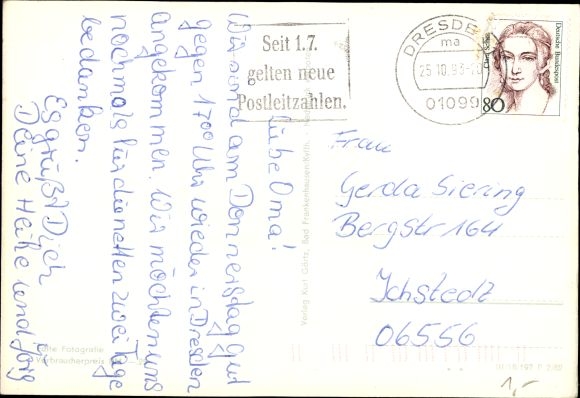 Liebe Oma!
Wir sind am Donnerstag gut
gegen 17 00 Uhr wieder in Dresden
angekommen. Wir möchten uns
nochmals für die netten zwei Tage
bedanken.
Es grüßt Dich
Deine Heike und Jörg
Seit 1.7.
gelten neue
Postleitzahlen.
DRESDEN
ma
25.10.93
01099
Deutsche Bundespost
Clara Schumann
80
Frau
Gerda Siering
Bergstr 164
Ichstedt
06556
Verlag Kurt Görtz, Bad Frankenhausen-Kyffh.
Echte Fotografie
Verbraucherpreis
1,-